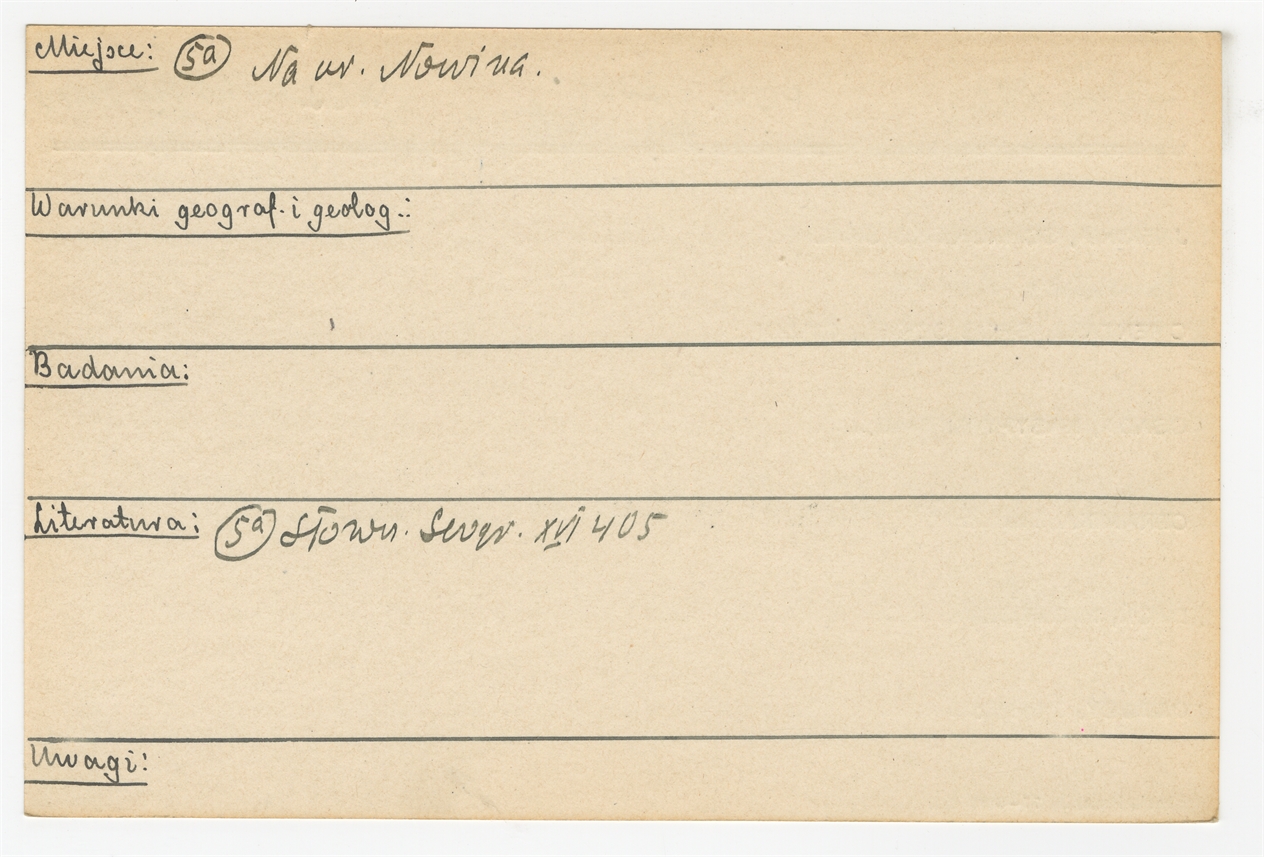 Miejsce: 5a Na ur. Nowina.
Warunki geograf. i geolog.:
Badania:
Literatura: 5a Słown. Geogr. XVI 405
Uwagi: